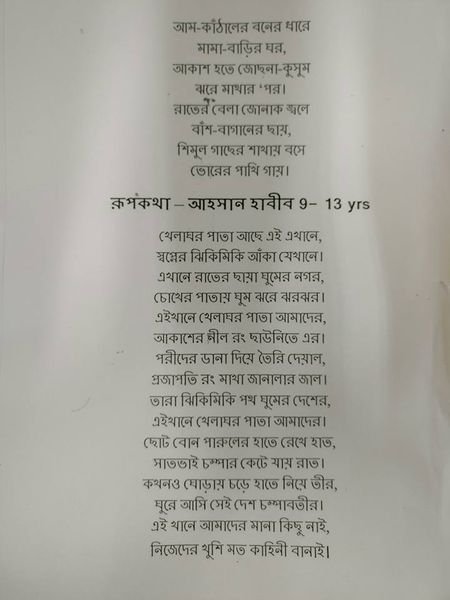 আম-কাঁঠালের বনের ধারে
মামা-বাড়ির ঘর,
আকাশ হতে জোছনা-কুসুম
ঝরে মাথার ‘পর।
রাতের বেলা জোনাক জ্বলে
বাঁশ-বাগানের ছায়,
শিমুল গাছের শাখায় বসে
ভোরের পাখি গায়।
রূপকথা – আহসান হাবীব 9– 13 yrs
খেলাঘর পাতা আছে এই এখানে,
স্বপ্নের ঝিকিমিকি আঁকা যেখানে।
এখানে রাতের ছায়া ঘুমের নগর,
চোখের পাতায় ঘুম ঝরে ঝরঝর।
এইখানে খেলাঘর পাতা আমাদের,
আকাশের নীল রং ছাউনিতে এর।
পরীদের ডানা দিয়ে তৈরি দেয়াল,
প্রজাপতি রং মাখা জানালার জাল।
তারা ঝিকিমিকি পথ ঘুমের দেশের,
এইখানে খেলাঘর পাতা আমাদের।
ছোট বোন পারুলের হাতে রেখে হাত,
সাতভাই চম্পার কেটে যায় রাত।
কখনও ঘোড়ায় চড়ে হাতে নিয়ে তীর,
ঘুরে আসি সেই দেশ চম্পাবতীর।
এই খানে আমাদের মানা কিছু নাই,
নিজেদের খুশি মত কাহিনী বানাই।